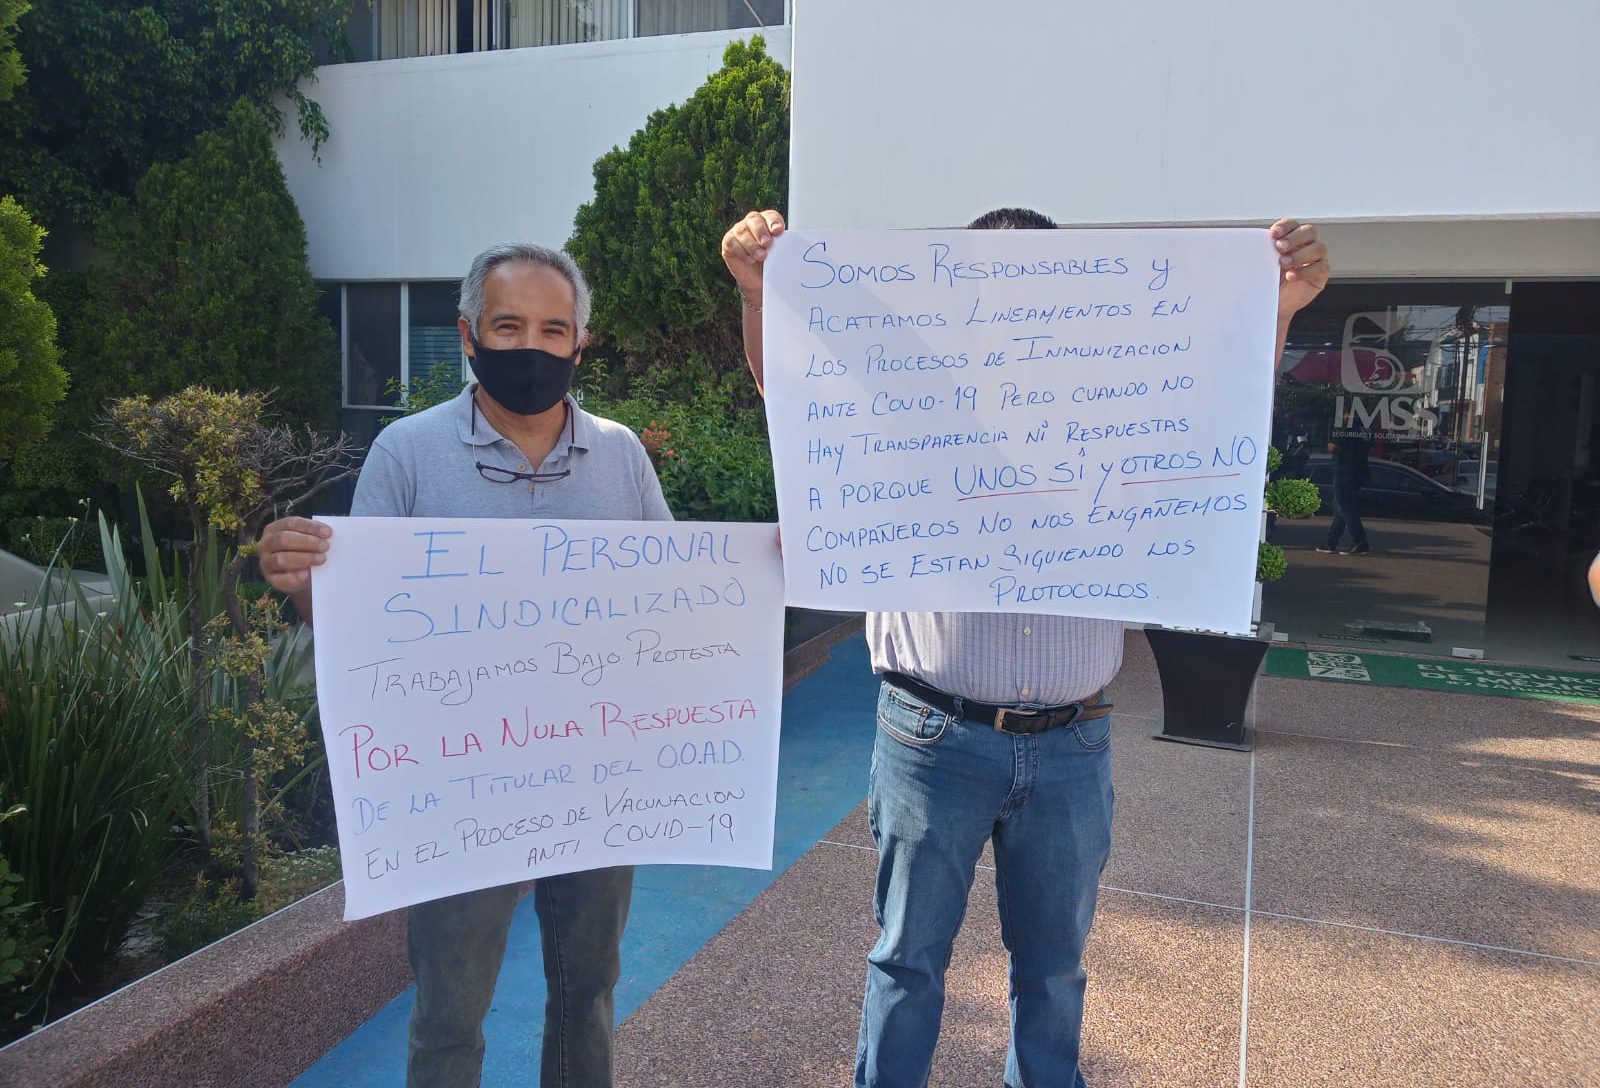 EL PERSONAL
SINDICALIZADO
TRABAJAMOS BAJO PROTESTA
POR LA NULA RESPUESTA
DE LA TITULAR DEL O.O.A.D.
EN EL PROCESO DE VACUNACION
ANTI COVID-19
SOMOS RESPONSABLES Y
ACATAMOS LINEAMIENTOS EN
LOS PROCESOS DE INMUNIZACION
ANTE COVID-19 PERO CUANDO NO
HAY TRANSPARENCIA NI RESPUESTAS
A PORQUE UNOS SÍ Y OTROS NO
COMPAÑEROS NO NOS ENGAÑEMOS
NO SE ESTAN SIGUIENDO LOS
PROTOCOLOS.
IMSS
SEGURIDAD Y SOLIDARIDAD